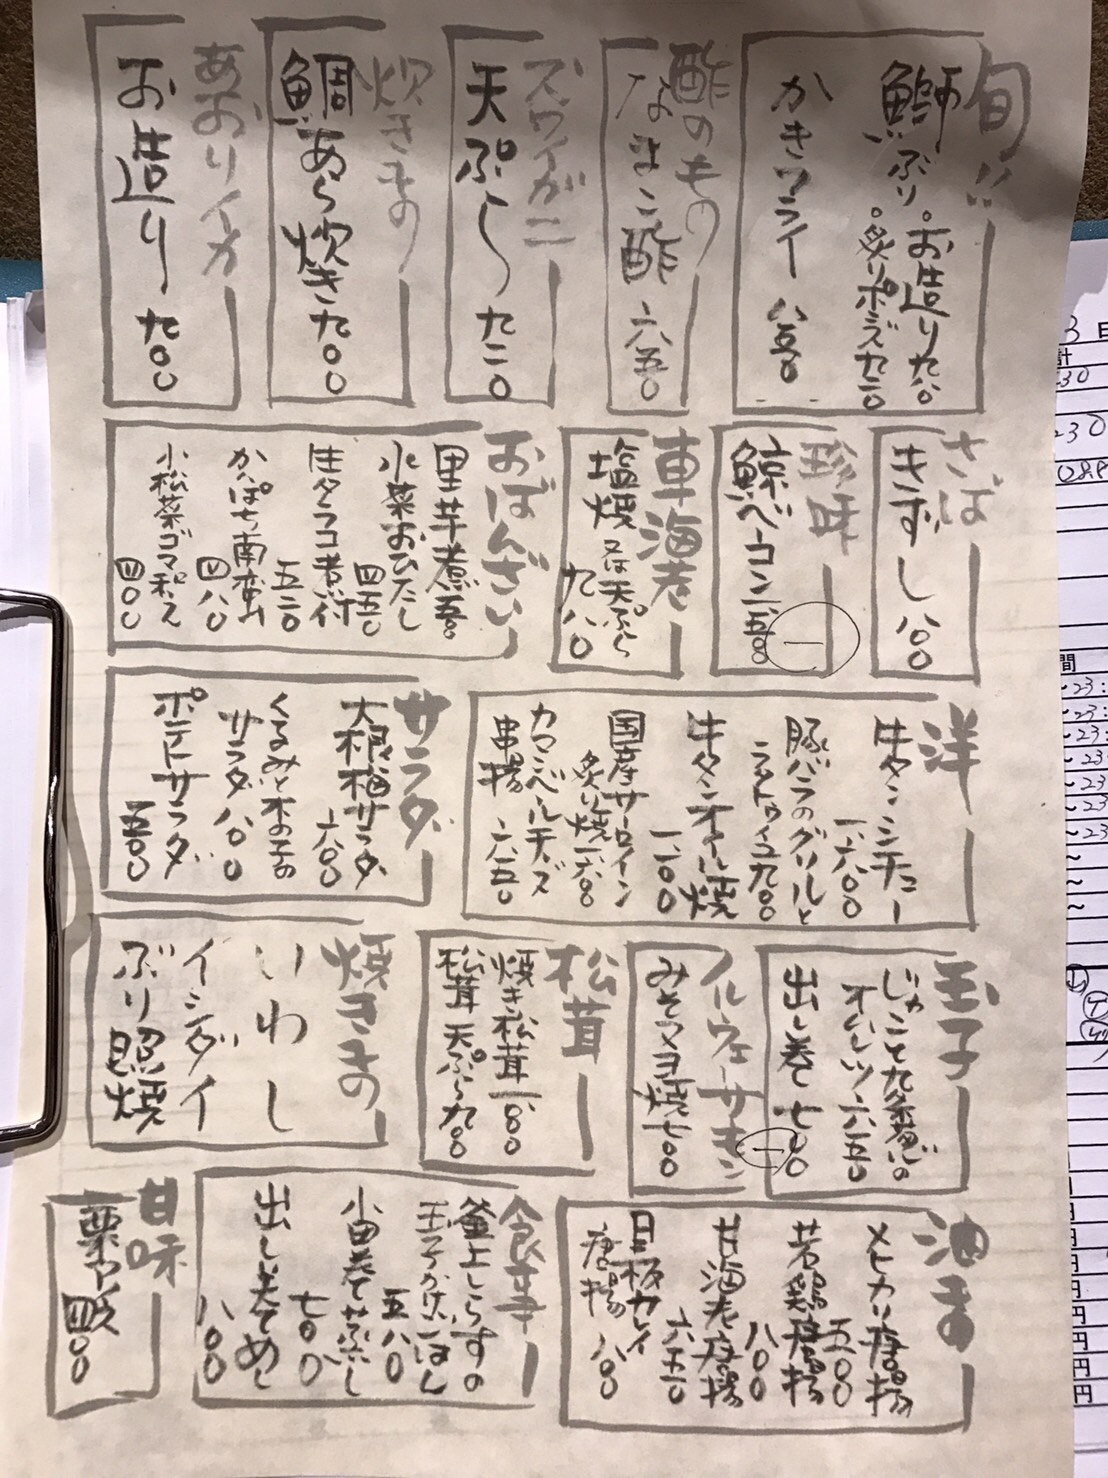 旬!!
鰤ぶり
。お造り 九八〇
。炙りポン酢 九二〇
かきフライ 八五〇
酢のもの
なまこ酢 六五〇
ズワイガニ
天ぷら 九二〇
炊きもの
鯛あら炊き 九〇〇
あおりイカ
お造り 九〇〇
さば
きずし 八〇〇
珍味
鯨ベーコン
車海老
塩焼 又は天ぷら
九八〇
おばんざい
里芋煮 五〇〇
水菜おひたし
四五〇
生タラコ煮付
五二〇
かぼちゃ南蛮
四八〇
小松菜ゴマ和え
四〇〇
洋
牛タンシチュー
一六〇〇
豚バラのグリルと
ラタトゥイユ 九〇〇
牛タンオイル焼
一一〇〇
国産サーロイン
炙り焼 一六〇〇
カマンベールチーズ
串揚 六五〇
サラダ
大根梅サラダ
六〇〇
くるみと木の子の
サラダ 八〇〇
ポテトサラダ
五〇〇
玉子
じゃこと九条ねぎの
オムレツ 六五〇
出し巻 七〇〇
ノルウェーサーモン
みそマヨ焼
松茸
焼き松茸 一八〇〇
松茸天ぷら 九八〇
焼きもの
いわし
イシダイ
ぶり照焼
油もの
メヒカリ唐揚
五〇〇
若鶏唐揚
八〇〇
甘海老唐揚
六五〇
唐揚 八〇〇
食事
釜上しらすの
玉子かけごはん
五八〇
小田巻むし
七〇〇
出し茶めし
八〇〇
甘味
栗アイス
四〇〇